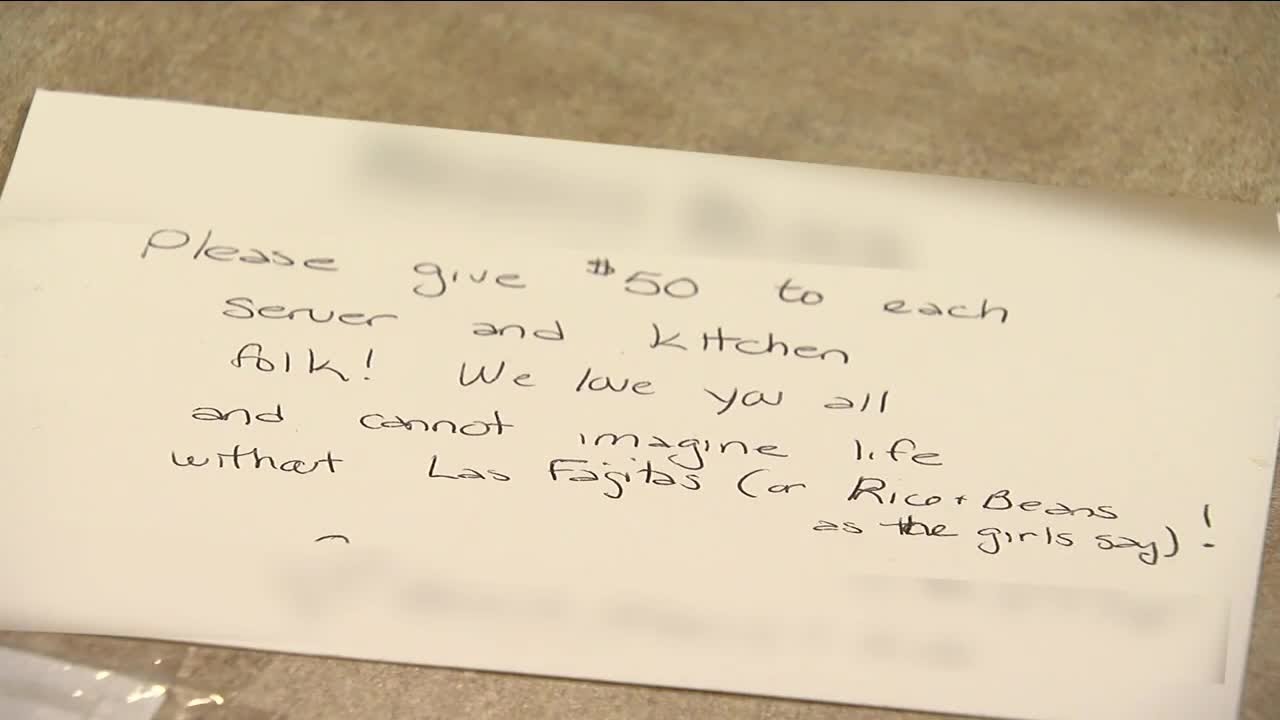 Please give $50 to each
server and kitchen
folk! We love you all
and cannot imagine life
without Las Fajitas (or Rice + Beans
as the girls say)!